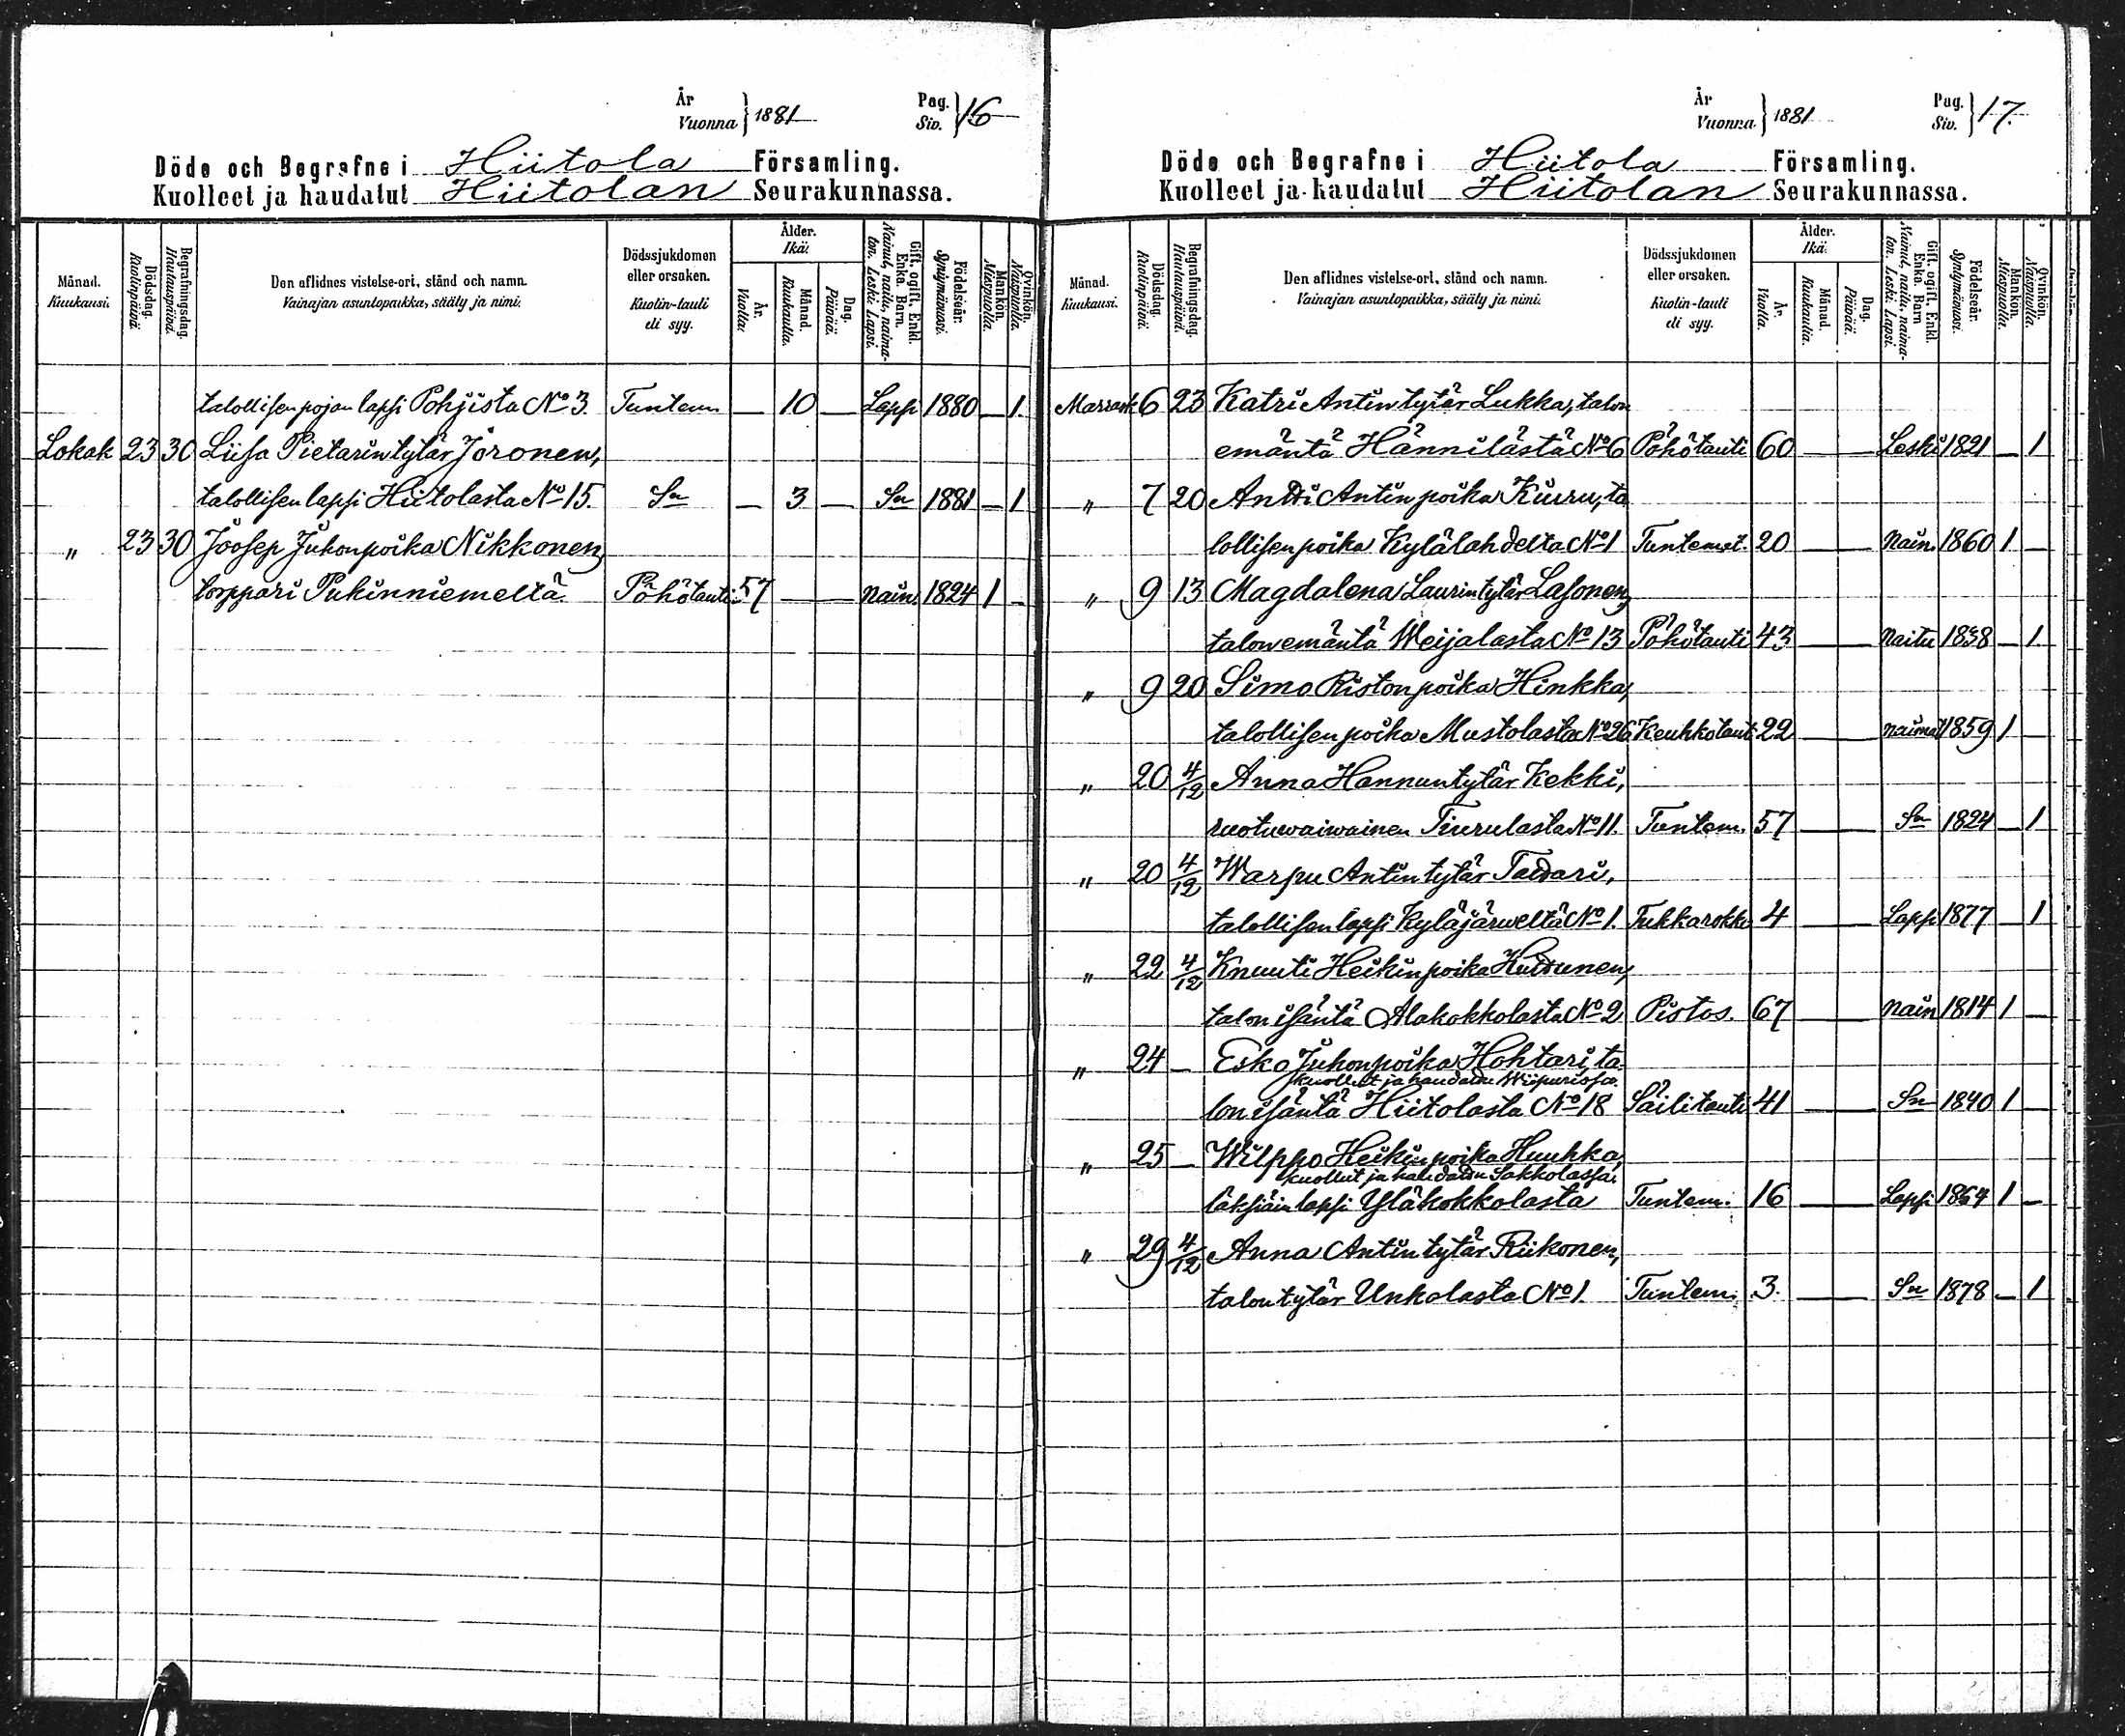 År
Vuonna } 1881
Pag.
Siv. } 16
Döde och Begrafne i Hiitola Församling.
Kuolleet ja haudatut Hiitolan Seurakunnassa.
Månad. Kuukausi.
Dödsdag. Kuolinpäivä.
Begrafningsdag. Hautauspäivä.
Den aflidnes vistelse-ort, stånd och namn.
Vainajan asuntopaikka, sääty ja nimi.
Dödssjukdomen eller orsaken.
Kuolin-tauti eli syy.
Ålder. Ikä.
År. Vuotta.
Månad. Kuukautta.
Dag. Päivää.
Gift, ogift, Enkl. Enka. Barn.
Nainut, naitu, naimaton. Leski. Lapsi.
Födelseår. Syntymävuosi.
Mankön. Miespuolia.
Qvinkön. Naispuolia.
talollisen pojan lapsi Pohjista No 3. Tuntem. — 10 — Lapsi 1880 — 1.
Lokak 23 30 Liisa Pietarintytär Joronen,
talollisen lapsi Hiitolasta No 15. Sn — 3 — Sn 1881 — 1
" 23 30 Joosep Juhonpoika Nikkonen,
torppari Pukinniemeltä. Pöhötauti 57 — — Nain. 1824 1 —
År
Vuonna } 1881
Pag.
Siv. } 17.
Döde och Begrafne i Hiitola Församling.
Kuolleet ja haudatut Hiitolan Seurakunnassa.
Månad. Kuukausi.
Dödsdag. Kuolinpäivä.
Begrafningsdag. Hautauspäivä.
Den aflidnes vistelse-ort, stånd och namn.
Vainajan asuntopaikka, sääty ja nimi.
Dödssjukdomen eller orsaken.
Kuolin-tauti eli syy.
Ålder. Ikä.
År. Vuotta.
Månad. Kuukautta.
Dag. Päivää.
Gift, ogift, Enkl. Enka. Barn
Nainut, naitu, naimaton. Leski. Lapsi.
Födelseår. Syntymävuosi.
Mankön. Miespuolia.
Qvinkön. Naispuolia.
Marrask 6 23 Katri Antintytär Lukka, talon
emäntä Hännilästä No 6 Pöhötauti 60 — — Leski 1821 — 1
" 7 20 Antti Antinpoika Kiuru, ta
lollisen poika Kylälahdelta No 1 Tuntemat. 20 — — Nain. 1860 1 —
" 9 13 Magdalena Laurintytär Lasonen,
talon emäntä Weijalasta No 13 Pöhötauti 43 — — Naitu 1838 — 1.
" 9 20 Simo Ristonpoika Hinkka,
talollisen poika Mustolasta No 26 Keuhkotaut. 22 — — naimat 1859 1 —
" 20 4/12 Anna Hannuntytär Kekki,
ruotuwaiwainen Tiurulasta No 11. Tuntem. 57 — — Sn 1824 — 1
" 20 4/12 Warpu Antintytär Tattari,
talollisen lapsi Kyläjärweltä No 1. Tuhkarokko 4 — — Lapsi 1877 — 1
" 22 4/12 Knuuti Heikinpoika Kuttunen,
talon isäntä Alakokkolasta No 2 Pistos. 67 — — Nain 1814 1 —
" 24 — Esko Juhonpoika Hohtari, ta
kuollut ja haudattu Wiipurissa.
lon isäntä Hiitolasta No 18 Säilitauti 41 — — Sn 1840 1 —
" 25 — Wilppo Heikinpoika Huuhka,
kuollut ja haudattu Sakkolassa.
läksiäin lapsi Yläkokkolasta Tuntem. 16 — — Lapsi 1864 1 —
" 29 4/12 Anna Antintytär Riikonen,
talon tytär Unkolasta No 1. Tuntem. 3. — — Sn 1878 — 1